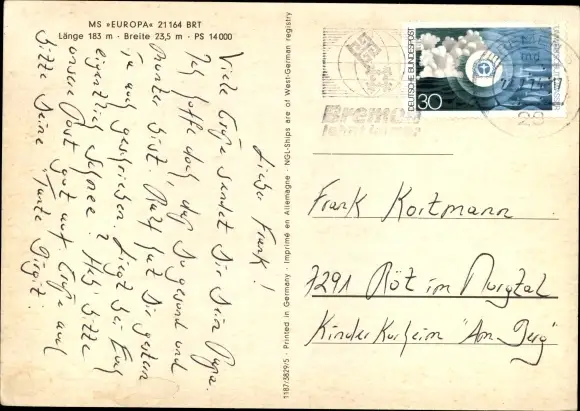 MS »EUROPA« 21 164 BRT
Länge 183 m · Breite 23,5 m · PS 14 000
Lieber Frank!
Viele Grüße sendet Dir Dein Papa.
Ich hoffe doch, daß Du gesund und
munter bist. Ralf hat Dir gestern
ja auch geschrieben. Liegt bei Euch
eigentlich Schnee? Heb bitte
unsere Post gut auf. Grüße auch
bitte Deine "Tante Birgit".
1187/3829/5 · Printed in Germany · Imprimé en Allemagne · NGL-Ships are of West-German registry
DEUTSCHE BUNDESPOST
30
Bremen
lohnt immer
28
Frank Kortmann
7291 Röt im Murgtal
Kinderkurheim "Am Berg"